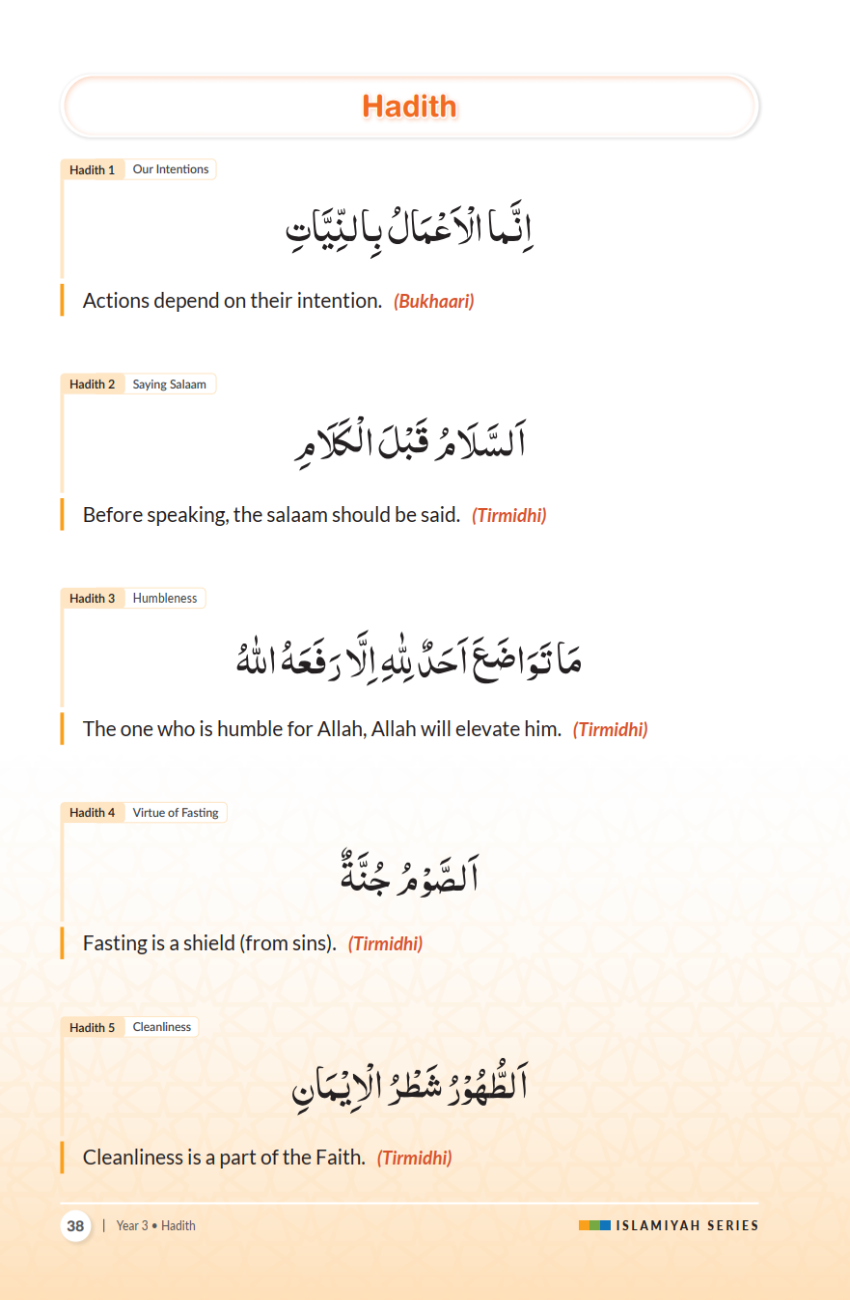 Hadith
Hadith 1 Our Intentions
اِنَّمَا الْاَعْمَالُ بِالنِّيَّاتِ
Actions depend on their intention. (Bukhaari)
Hadith 2 Saying Salaam
اَلسَّلَامُ قَبْلَ الْكَلَامِ
Before speaking, the salaam should be said. (Tirmidhi)
Hadith 3 Humbleness
مَا تَوَاضَعَ اَحَدٌ لِلّٰهِ اِلَّا رَفَعَهُ اللّٰهُ
The one who is humble for Allah, Allah will elevate him. (Tirmidhi)
Hadith 4 Virtue of Fasting
اَلصَّوْمُ جُنَّةٌ
Fasting is a shield (from sins). (Tirmidhi)
Hadith 5 Cleanliness
اَلطُّهُوْرُ شَطْرُ الْاِيْمَانِ
Cleanliness is a part of the Faith. (Tirmidhi)
38 | Year 3 • Hadith ISLAMIYAH SERIES